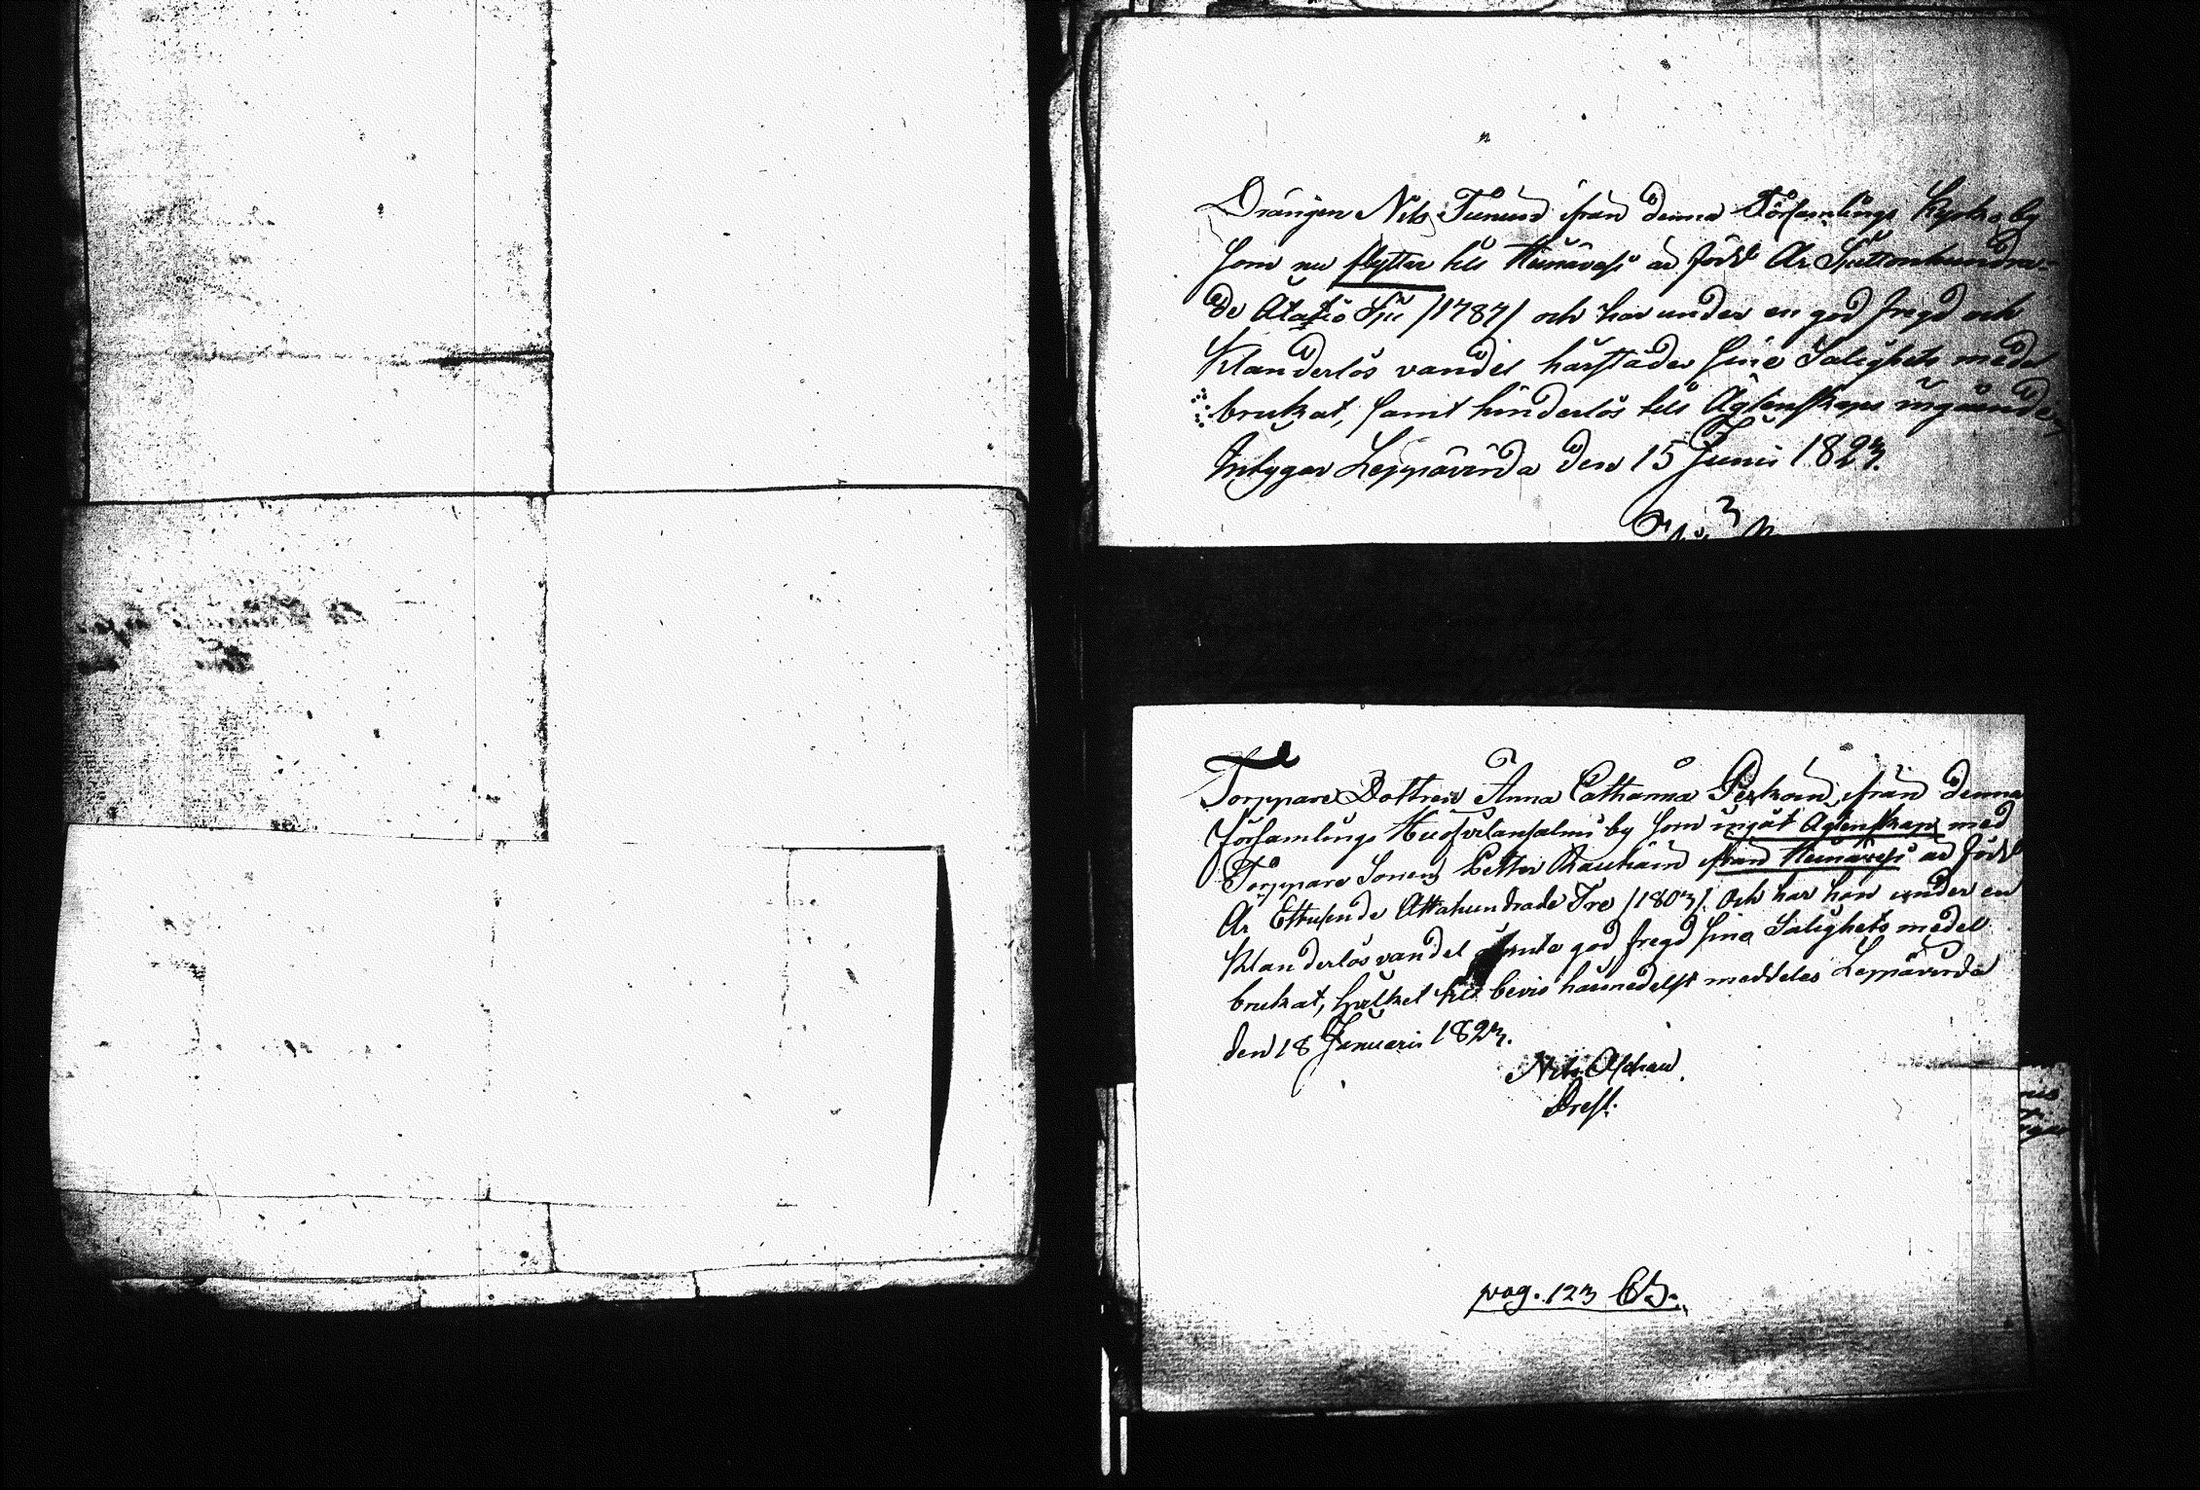 Drängen Nils Tirinen ifrån denna Församlings Kyrkoby
som nu flyttar till Heinävesi är född År Sjuttonhundra-
de Åtatio Sju /1787/ och har under en god fregd och
klanderlös vandel härstädes sine Salighets medel
brukat, samt hinderlös till Ägtenskaps ingående
Intygar Leppävirda den 15 Junii 1823.
Torppare Dottren Anna Catharina ifrån denna
församlings by som ingåt Ägtenskap med
Torppare Sonen Petter Rauhain ifrån Heinävesi är född
År Ettusende Attahundrade Tre /1803/. Och har hon under en
klanderlös vandel god fregd sine Salighets medel
brukat, hvilket till bevis härmedelst meddeles Leppävirda
den 18 Januarii 1823.
Nils Aschan
Præst.
pag. 123